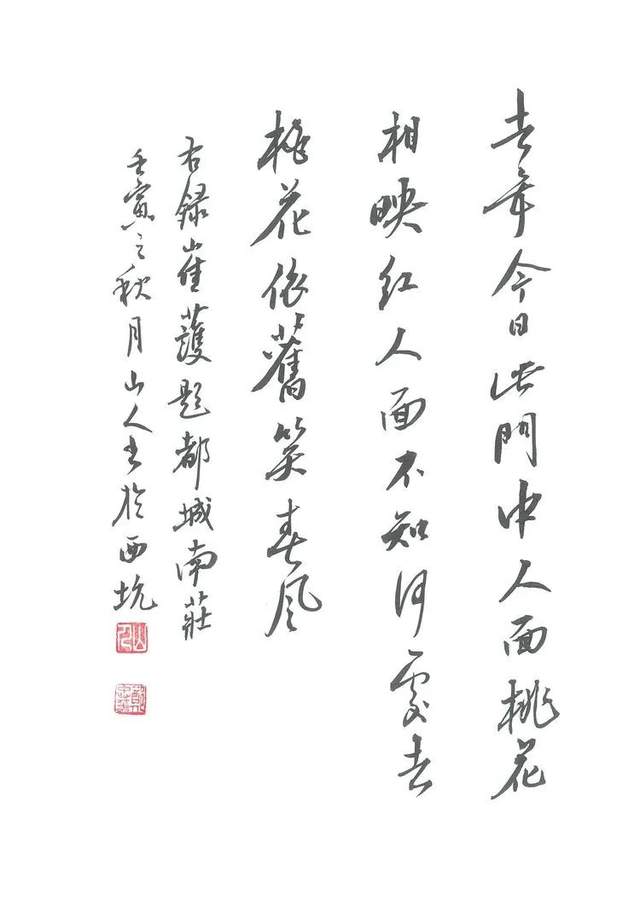 去年今日此門中人面桃花
相映红人面不知何處去
桃花依舊笑春风
右録崔護題都城南莊
壬寅之秋月山人书於西坑